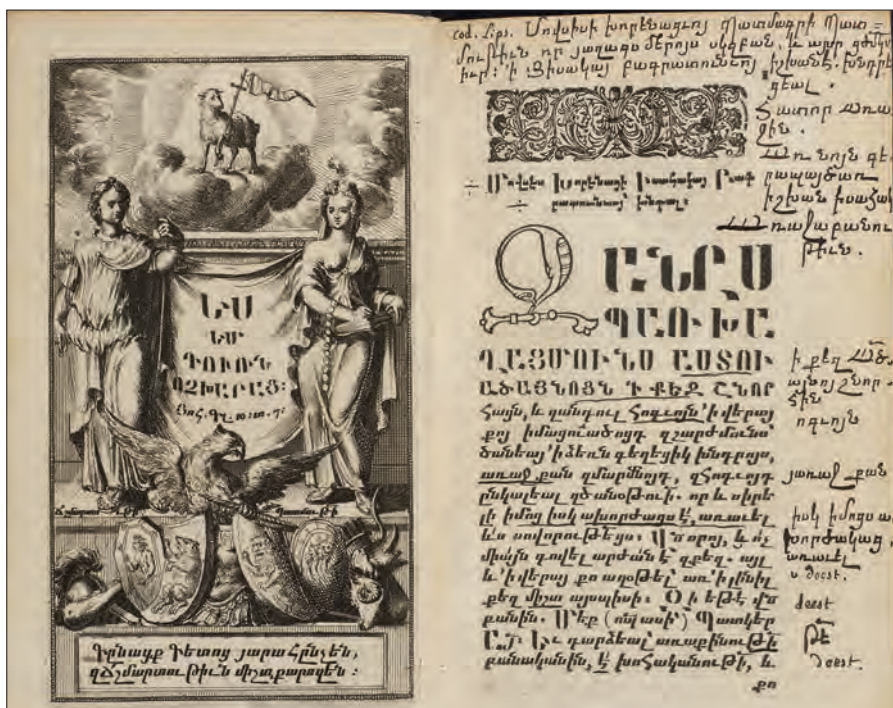 ԵՍ
ԵՄ
ԴՈՒՌՆ
ՈՉԽԱՐԱՑ։
Պատմու Թի
յարա Հընչեն,
զՃշմարտու Թիւն միշտ քարոզեն ։
cod. Lips. Մովսիսի խորենացւոյ Պատմագրի Պատ=
մութիւն որ յաղագս մերոյս սկզբան, և այլր
իւր։ 'ի Սահակայ բագրատունւոյ իշխանէ. խնդրե
ցեալ .
Հատոր առա
ջին .
÷ Մովսես Խորենացի Սահակայ Բագ
րատունւոյ՝ խնդալ։
իշխան
առաջաբանու
թիւն.
ԶԱՆՐՍ
ՊԱՌԻԽԱ
ԴԱՅՍՈՒՆՍ ԱՍՏՈՒ
ԱԾԱՅՆՈՅՆ Ի ՔԵԶ ՇՆՈՐ
Հայն, և զանդուլ Հոգւոյն՝ ի վերայ
քոյ իմացուածոցդ զշարժմունս՝
ծանեայ՝ ի ձեռն գեղեցիկ խնդրոյս,
առաջ քան զմարմնոյդ, զՀոգւոյդ
ընկալեալ զծանօթուի. որ և սիրե
լի իմոց իսկ ախորժակաց է, առաւել
ևս սովորութեցս։ Վասորոյ, և ոչ
միայն գովել արժան է զքեզ. այլ
և՝ ի վերայ քո աղօթել՝ առ՝ ի լինիլ
քեզ միշտ այսպիսի։ Զի եթէ վս
բանին. Մեք (որպ ասի՝) Պատկեր
Այ. Եւ դարձեալ՝ առաքինութի
բանականին, է խոհականութի, և
քո
ի քեզ
շնոր-
հին
ոգւոյն
յառաջ քան
իսկ իմոցս ա
խորժակաց.
առաւել
ս deest.
deest
թէ
deest.